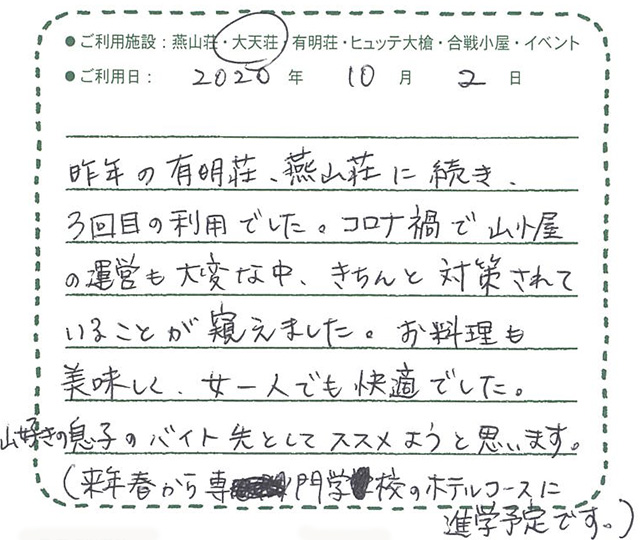 ●ご利用施設：燕山荘・大天荘・有明荘・ヒュッテ大槍・合戦小屋・イベント
●ご利用日：2020年10月2日
昨年の有明荘、燕山荘に続き、
3回目の利用でした。コロナ禍で山小屋
の運営も大変な中、きちんと対策されて
いることが窺えました。お料理も
美味しく、女一人でも快適でした。
山好きの息子のバイト先としてススメようと思います。
(来年春から専門学校のホテルコースに
進学予定です。)